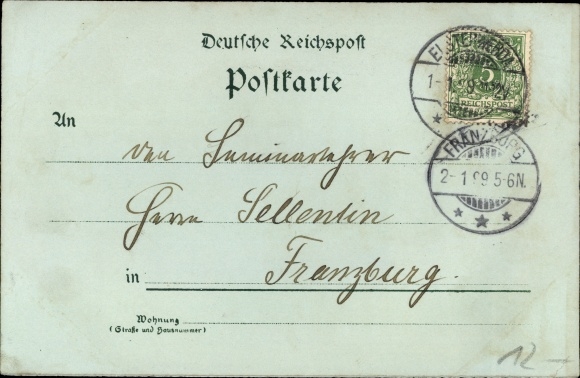 Deutsche Reichspost
Postkarte
ELSTERWERDA
1-1 99
5
REICHSPOST
FRANZBURG
2-1 99 5-6N.
An
den Seminarlehrer
Herrn Sellentin
in Franzburg.
Wohnung
(Straße und Hausnummer)
12-